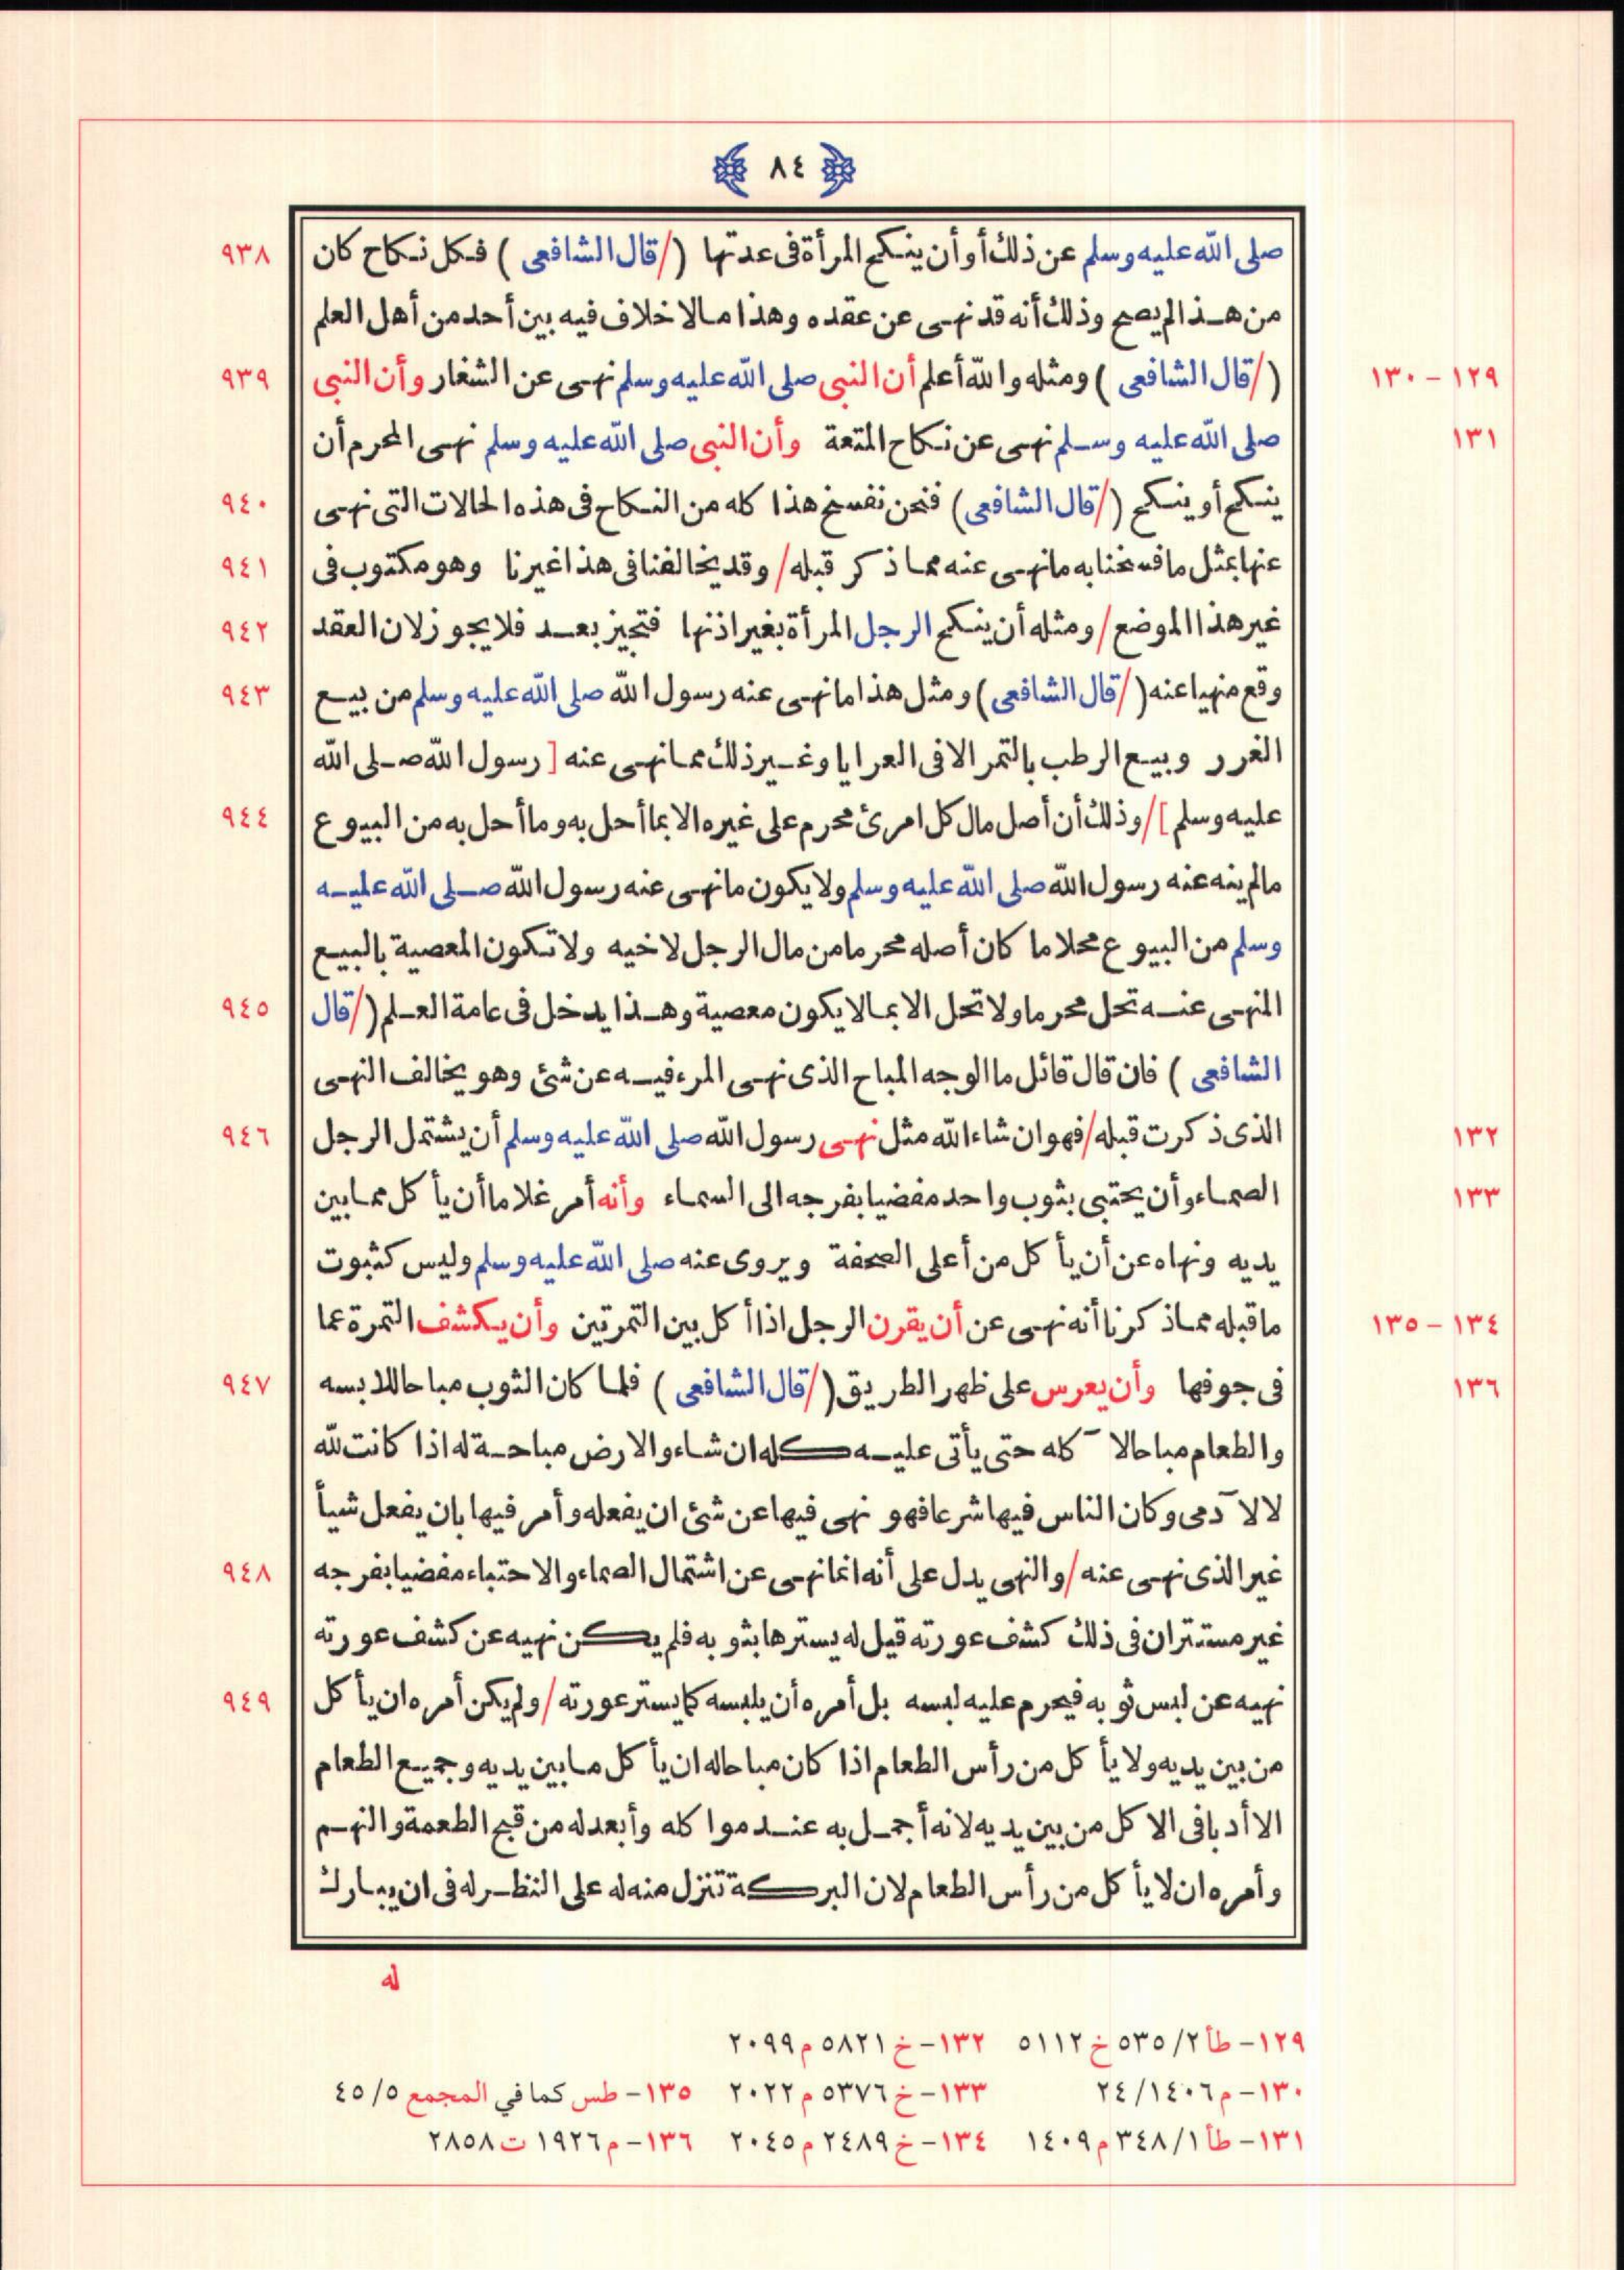 ٨٤
صلى الله عليه وسلم عن ذلك أو أن ينكح المرأة فى عدتها (/قال الشافعى) فكل نكاح كان ٩٣٨
من هذا لم يصح وذلك أنه قد نهى عن عقده وهذا مالا خلاف فيه بين أحد من أهل العلم
١٢٩ – ١٣٠ (/قال الشافعى) ومثله والله أعلم أن النبى صلى الله عليه وسلم نهى عن الشغار وأن النبى ٩٣٩
١٣١ صلى الله عليه وسلم نهى عن نكاح المتعة وأن النبى صلى الله عليه وسلم نهى المحرم أن
ينكح أو ينكح (/قال الشافعى) فنحن نفسخ هذا كله من النكاح فى هذه الحالات التى نهى ٩٤٠
عنها بمثل ما فسخنا به ما نهى عنه مما ذكر قبله/ وقد يخالفنا فى هذا غيرنا وهو مكتوب فى ٩٤١
غير هذا الموضع/ ومثله أن ينكح الرجل المرأة بغير اذنها فتجيز بعد فلا يجوز لان العقد ٩٤٢
وقع منهيا عنه (/قال الشافعى) ومثل هذا ما نهى عنه رسول الله صلى الله عليه وسلم من بيع ٩٤٣
الغرر وبيع الرطب بالتمر الا فى العرايا وغير ذلك مما نهى عنه [رسول الله صلى الله
عليه وسلم]/ وذلك أن أصل مال كل امرئ محرم على غيره الا بما أحل به وما أحل به من البيوع ٩٤٤
مالم ينه عنه رسول الله صلى الله عليه وسلم ولا يكون ما نهى عنه رسول الله صلى الله عليه
وسلم من البيوع محلا ما كان أصله محرما من مال الرجل لاخيه ولا تكون المعصية بالبيع
المنهى عنه تحل محرما ولا تحل الا بما لا يكون معصية وهذا يدخل فى عامة العلم (/قال ٩٤٥
الشافعى) فان قال قائل ما الوجه المباح الذى نهى المرء فيه عن شئ وهو يخالف النهى
١٣٢ الذى ذكرت قبله/ فهو ان شاء الله مثل نهى رسول الله صلى الله عليه وسلم أن يشتمل الرجل ٩٤٦
١٣٣ الصماء وأن يحتبى بثوب واحد مفضيا بفرجه الى السماء وأنه أمر غلاما أن يأكل مما بين
يديه ونهاه عن أن يأكل من أعلى الصحفة ويروى عنه صلى الله عليه وسلم وليس كثبوت
١٣٤ – ١٣٥ ما قبله مما ذكرنا أنه نهى عن أن يقرن الرجل اذا أكل بين التمرتين وأن يكشف التمرة عما
١٣٦ فى جوفها وأن يعرس على ظهر الطريق (/قال الشافعى) فلما كان الثوب مباحا للابسه ٩٤٧
والطعام مباحا لآكله حتى يأتى عليه كله ان شاء والارض مباحة له اذا كانت لله
لا لآدمى وكان الناس فيها شرعا فهو نهى فيها عن شئ ان يفعله وأمر فيها بان يفعل شيأ
غير الذى نهى عنه/ والنهى يدل على أنه انما نهى عن اشتمال الصماء والاحتباء مفضيا بفرجه ٩٤٨
غير مستتر ان فى ذلك كشف عورته قيل له يسترها بثوبه فلم يكن نهيه عن كشف عورته
نهيه عن لبس ثوبه فيحرم عليه لبسه بل أمره أن يلبسه كما يستر عورته/ ولم يكن أمره ان يأكل ٩٤٩
من بين يديه ولا يأكل من رأس الطعام اذا كان مباحا له ان يأكل ما بين يديه وجميع الطعام
الا أدبا فى الاكل من بين يديه لانه أجمل به عند مواكله وأبعد له من قبح الطعمة والنهم
وأمره ان لا يأكل من رأس الطعام لان البركة تنزل منه له على النظر له فى ان يبارك
له
١٢٩– طأ ٥٣٥/٢ خ ٥١١٢ ١٣٢– خ ٥٨٢١ م ٢٠٩٩
١٣٠– م ٢٤/١٤٠٦ ١٣٣– خ ٥٣٧٦ م ٢٠٢٢ ١٣٥– طس كما في المجمع ٤٥/٥
١٣١– طأ ٣٤٨/١ م ١٤٠٩ ١٣٤– خ ٢٤٨٩ م ٢٠٤٥ ١٣٦– م ١٩٢٦ ت ٢٨٥٨